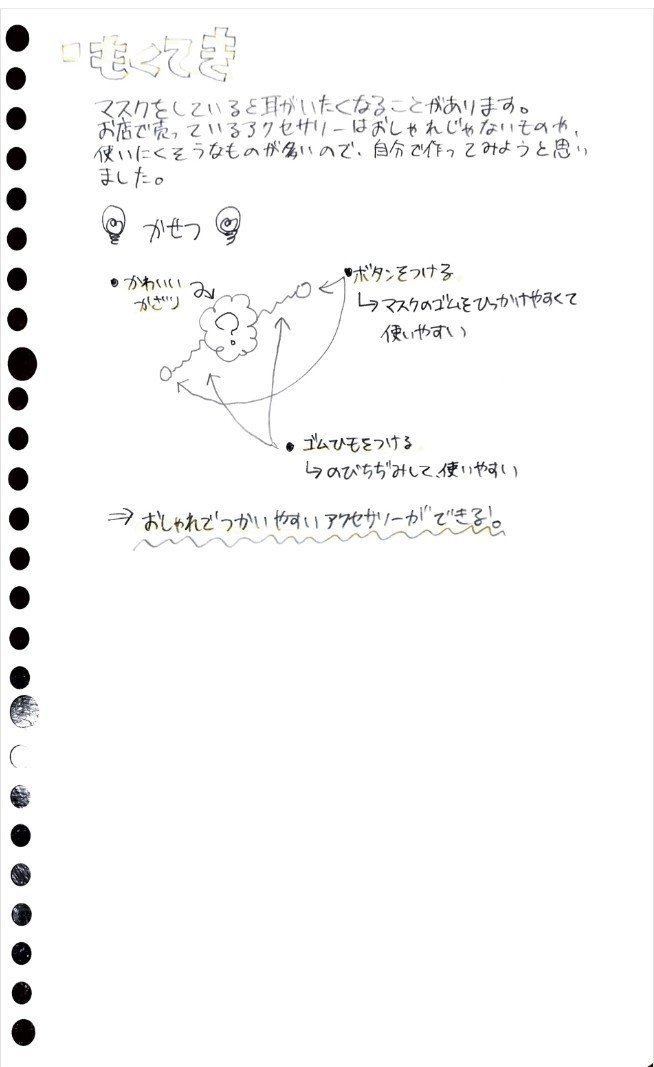 もくてき
マスクをしていると耳がいたくなることがあります。
お店で売っているアクセサリーはおしゃれじゃないものや、
使いにくそうなものが多いので、自分で作ってみようと思い
ました。
かせつ
・かわいい
かざり
?
・ボタンをつける
↳マスクのゴムをひっかけやすくて
使いやすい
・ゴムひもをつける
↳のびちぢみして、使いやすい
⇒おしゃれでつかいやすいアクセサリーができる!。